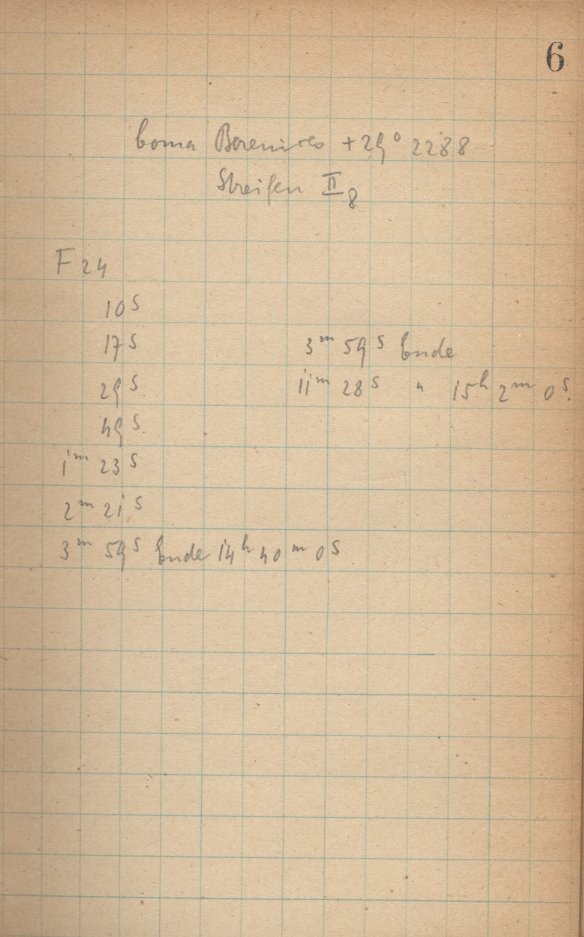 6
Coma Berenices +29° 2288
Streifen II₈
F 24
10ˢ
17ˢ
29ˢ
49ˢ
1ᵐ 23ˢ
2ᵐ 21ˢ
3ᵐ 59ˢ Ende 14ʰ 40ᵐ 0ˢ
3ᵐ 59ˢ Ende
11ᵐ 28ˢ " 15ʰ 2ᵐ 0ˢ.